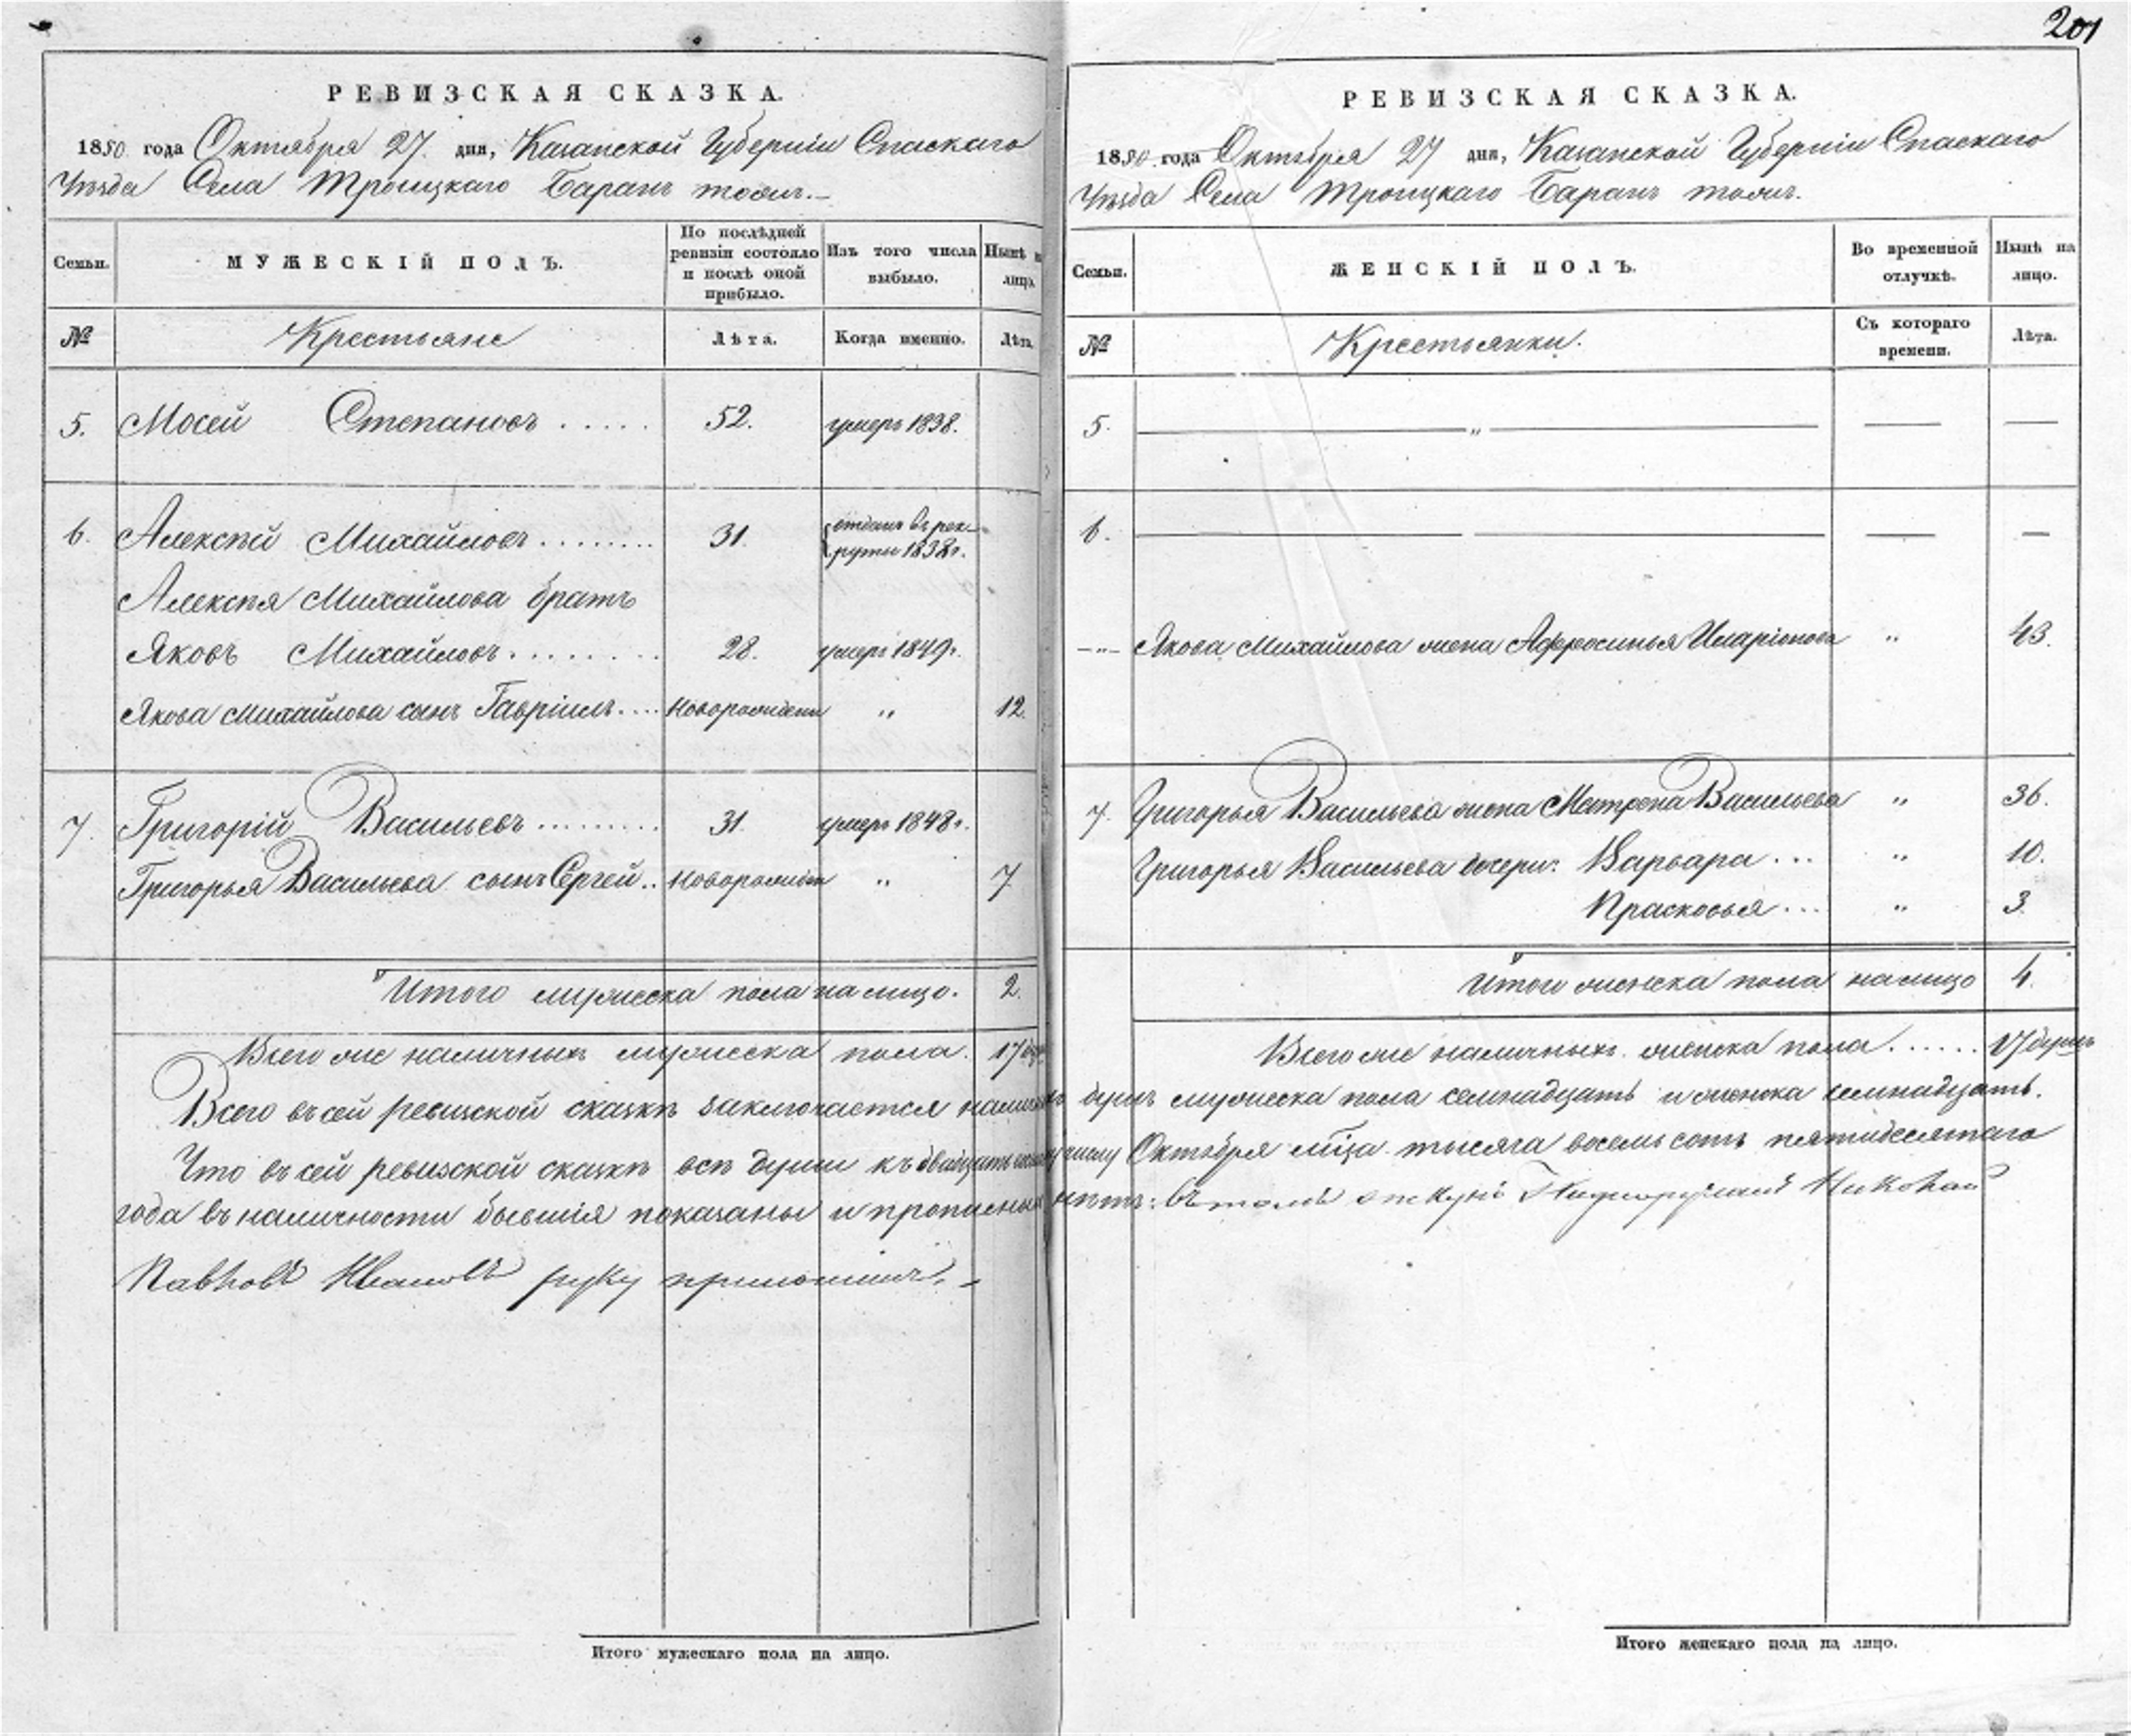 201
РЕВИЗСКАЯ СКАЗКА.
1850 года Октября 27. дня, Казанской Губерніи Спаскаго
Уѣзда Села Троицкаго Баранъ тожъ.
Семьи.
МУЖЕСКІЙ ПОЛЪ.
По послѣдней ревизіи состояло и послѣ оной прибыло.
Изъ того числа выбыло.
Нынѣ на лицо.
№
Крестьяне
Лѣта.
Когда именно.
Лѣта.
5. Мосей Степановъ 52. умеръ 1838.
6. Алексѣй Михайловъ 31. отданъ въ рек-
руты 1838г.
Алексѣя Михайлова братъ
Яковъ Михайловъ 28. умеръ 1849г.
Якова Михайлова сынъ Гавріилъ Новорожденъ " 12.
7. Григорій Васильевъ 31. умеръ 1848г.
Григорья Васильева сынъ Сергей Новорожден " 7
Итого мужеска пола на лицо. 2.
Всего же наличныхъ мужеска пола. 17 душъ
РЕВИЗСКАЯ СКАЗКА.
1850 года Октября 27 дня, Казанской Губерніи Спаскаго
Уѣзда Села Троицкаго Баранъ тожъ.
Семьи.
ЖЕНСКІЙ ПОЛЪ.
Во временной отлучкѣ.
Нынѣ на лицо.
№
Крестьянки.
Съ котораго времени.
Лѣта.
5. — " — — —
6. — — — —
—"— Якова Михайлова жена Афросинья Иларіонова " 43.
7. Григорья Васильева жена Матрена Васильева " 36.
Григорья Васильева дочери: Варвара " 10.
Прасковья " 3.
Итого женска пола на лицо 4.
Всего же наличныхъ женска пола 17 душъ
Всего въ сей ревизской сказкѣ заключается наличныхъ душъ мужеска пола семнадцать и женска семнадцать.
Что въ сей ревизской сказкѣ всѣ души къ двадцать числу Октября мѣсяца тысяча восемь сотъ пятидесятаго
года въ наличности бывшія показаны и прописныхъ нѣтъ: въ томъ Николай
Павловъ Ивановъ руку приложилъ.
Итого мужескаго пола на лицо.
Итого женскаго пола на лицо.